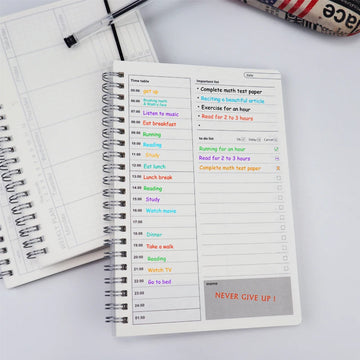 ace
Date:
Time table
05:00 get up
06:00 Brushing teeth
& Wash a face
07:00 Listen to music
08:00 Eat breakfast
09:00 Running
10:00 Reading
11:00 Study
12:00 Eat lunch
13:00 Lunch break
14:00 Reading
15:00 Study
16:00 Watch movie
17:00
18:00 Dinner
19:00 Take a walk
20:00 Reading
21:00 Watch TV
22:00 Go to bed
23:00
24:00
01:00
Important list
• Complete math test paper
• Reciting a beautiful article
• Exercise for an hour
• Read for 2 to 3 hours
•
to do list
Ok Delay Cancel
Running for an hour
Read for 2 to 3 hours
Complete math test paper
memo
NEVER GIVE UP !